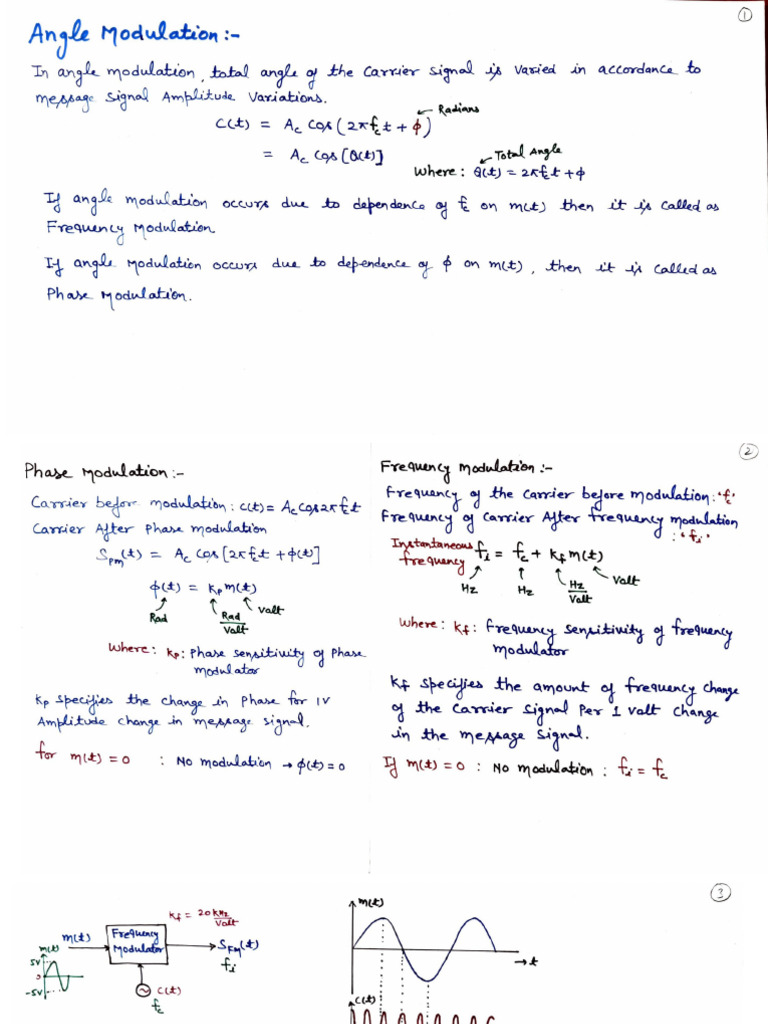 ①
Angle Modulation:-
In angle modulation, total angle of the carrier signal is varied in accordance to
message signal Amplitude Variations.
Radians
c(t) = Ac cos(2πfct + φ)
= Ac cos[θ(t)]
Total Angle
Where: θ(t) = 2πfct + φ
If angle modulation occurs due to dependence of fc on m(t) then it is called as
Frequency Modulation
If angle modulation occurs due to dependence of φ on m(t), then it is called as
Phase Modulation.
②
Phase Modulation:-
Carrier before modulation: c(t) = Ac cos2πfct
Carrier After Phase modulation
Spm(t) = Ac cos[2πfct + φ(t)]
φ(t) = kp m(t)
Rad
Rad/Volt
Volt
Where: kp: Phase sensitivity of Phase
modulator
kp specifies the change in Phase for 1V
Amplitude change in message signal.
for m(t) = 0 : No modulation → φ(t) = 0
Frequency modulation:-
Frequency of the carrier before modulation: 'fc'
Frequency of carrier After frequency modulation
: 'fi'
Instantaneous
frequency
fi = fc + kf m(t)
Hz
Hz
Hz/Volt
Volt
Where: kf: Frequency sensitivity of frequency
modulator
kf specifies the amount of frequency change
of the carrier signal Per 1 volt change
in the message signal.
If m(t) = 0 : No modulation : fi = fc
③
kf = 20 kHz/Volt
m(t)
Frequency
Modulator
SFM(t)
fi
m(t)
5V
0
-5V
c(t)
fc
m(t)
t
c(t)